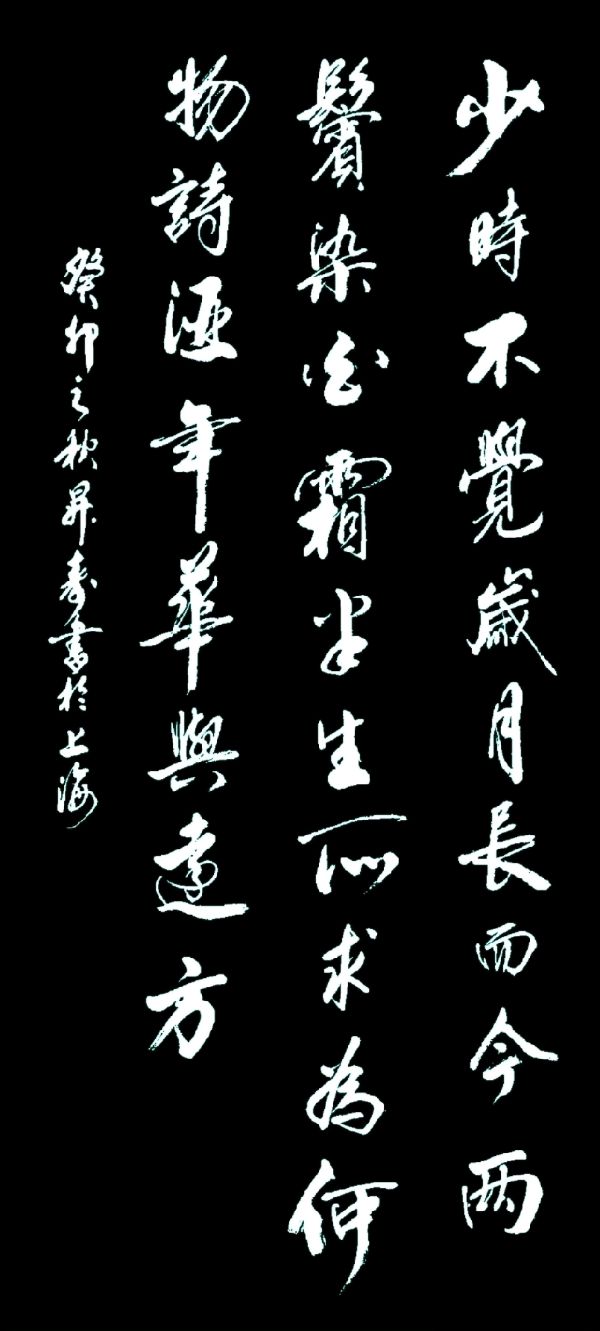 少時不覺歲月長而今兩
鬢染白霜半生所求為何
物詩酒年華與遠方
癸卯之秋昇壽書於上海